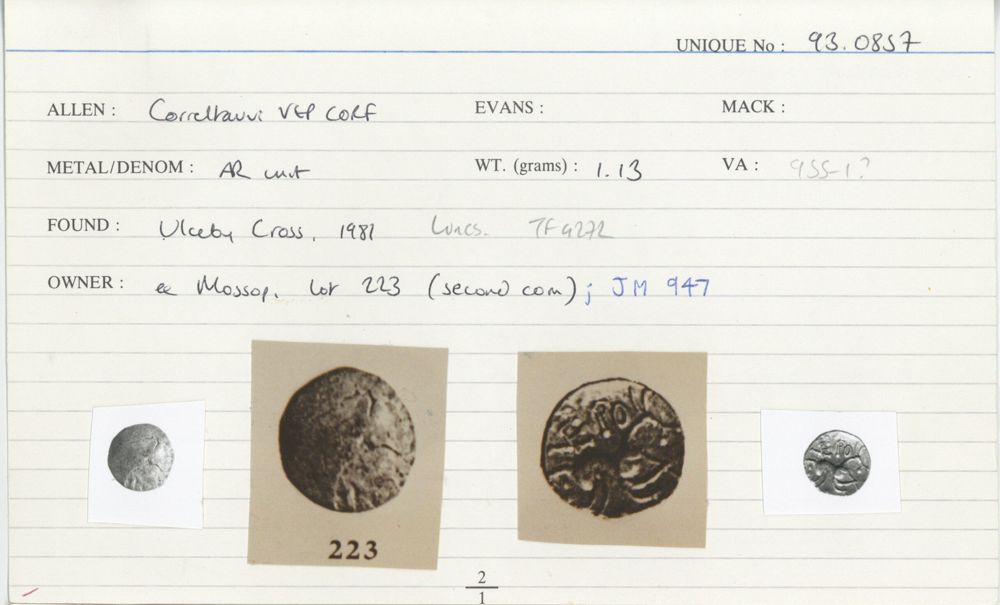 UNIQUE No : 93.0857
ALLEN : Correltauvi VEP CORF EVANS : MACK :
METAL/DENOM : AR unit WT. (grams) : 1.13 VA : 955-1?
FOUND : Ulceby Cross, 1981 Lincs. TF4272
OWNER : ex Mossop, lot 223 (second coin); JM 947
EPO
223
2
1